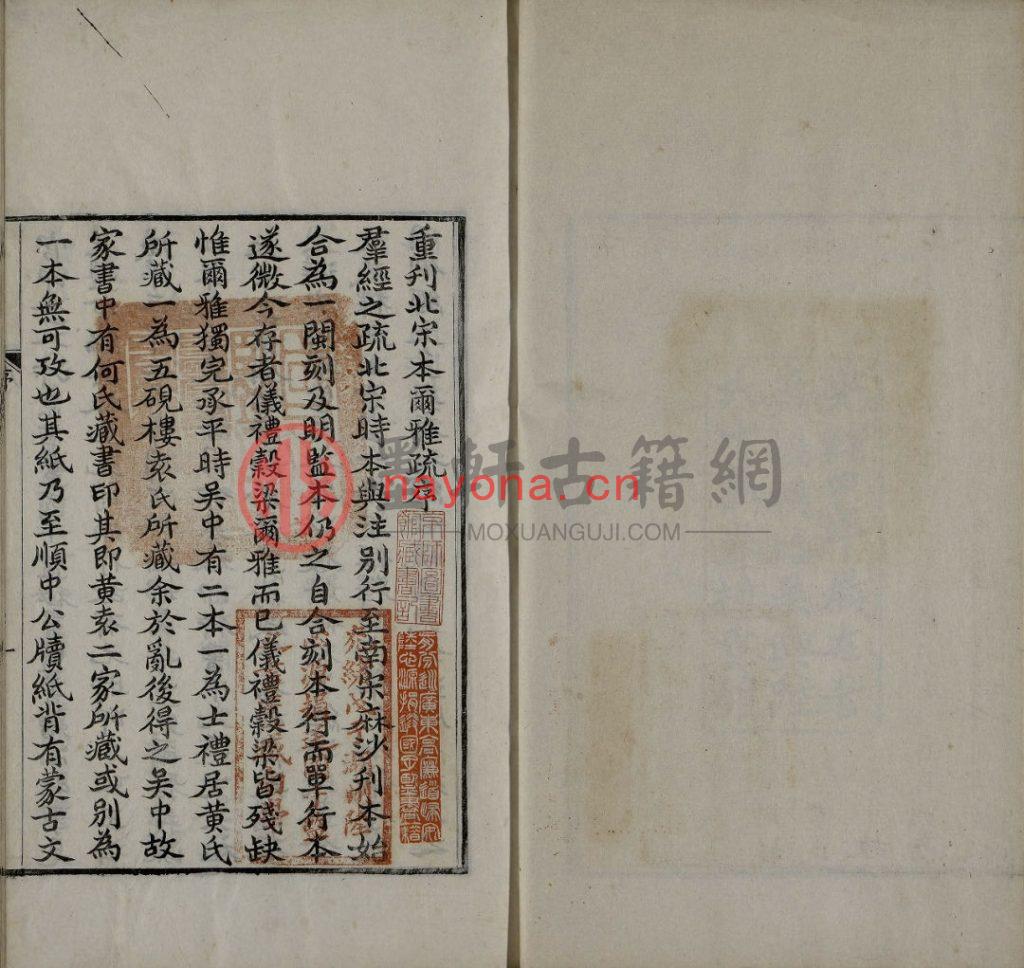 重刊北宋本爾雅疏序
羣經之疏北宋時本與注別行至南宋麻沙刊本始
合為一閩刻及明監本仍之自合刻本行而單行本
遂微今存者儀禮穀梁爾雅而已儀禮穀梁皆殘缺
惟爾雅獨完承平時吳中有二本一為士禮居黃氏
所藏一為五硯樓袁氏所藏余於亂後得之吳中故
家書中有何氏藏書印其即黃袁二家所藏或別為
一本無可攷也其紙乃至順中公牘紙背有蒙古文
前分巡廣東高廉道歸安
陸心源捐送國子監書籍
墨軒古籍網
nayona.cn
MOXUANGUJI.COM
序
一